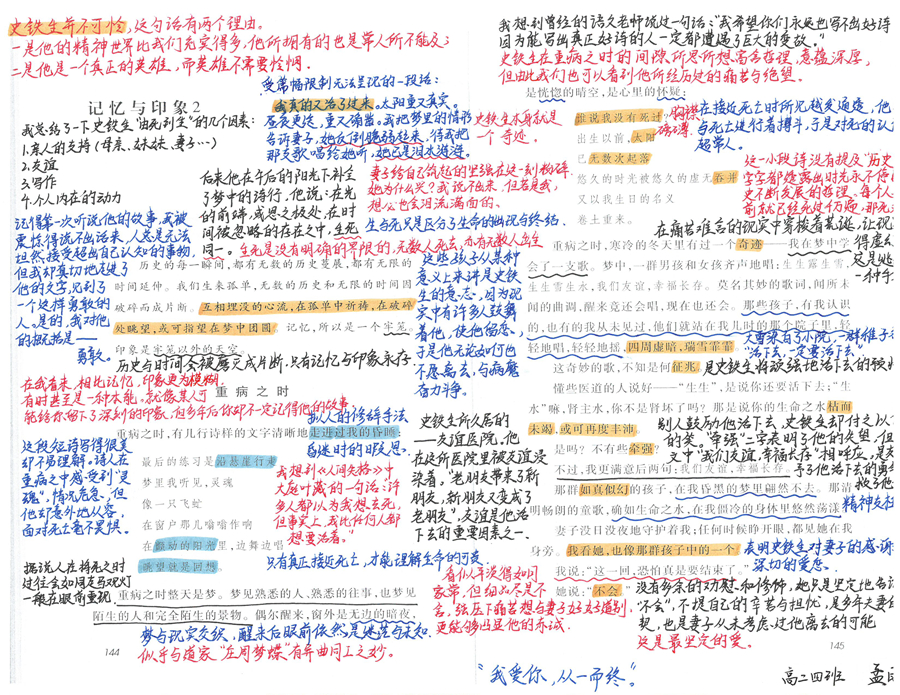 史铁生并不可怜,这句话有两个理由。
一是他的精神世界比我们充实得多,他所拥有的也是常人所不能及;
二是他是一个真正的英雄,而英雄不需要怜悯。
记忆与印象2
我总结了一下史铁生“由死到生”的几个因素:
1.亲人的支持(母亲、妹妹、妻子…)
2.友谊
3.写作
4.个人内在的动力
受常幅限制无法呈现的一段话:
我真的又活了过来。太阳重又真实。
昼夜更迭,重又确凿。我把梦里的情形
告诉妻子,她反倒脆弱起来,待我把
那支歌唱给她听,她已是泪水涟涟。
妻子给自己筑起的坚强在这一刻粉碎。
她为什么哭?我说不出来,但若是我,
想必也会泪流满面的。
后来他在午后的阳光下补全
了梦中的诗行,他说:在光
的前端,或思之极处,在时
间被忽略的存在之中,生死
同一。
生死是没有明确的界限的,无数人死去,亦有无数人出生
生与死只是区分了生命的出现与终结。
记得第一次听说他的故事,我被
震惊得说不出话来,人总是无法
坦然接受超出自己认知的事物,
但我却真切地走进了
他的文字,见到了
一个这样勇敢的
人。是的,我对他
的概括是——
勇敢。
历史的每一瞬间,都有无数的历史蔓展,都有无限的
时间延伸。我们生来孤单,无数的历史和无限的时间因
破碎而成片断。互相埋没的心流,在孤单中祈祷,在破碎
处眺望,或可指望在梦中团圆。记忆,所以是一个牢笼。
印象是牢笼以外的天空。
历史与时间会被磨灭成片断,只有记忆与印象永存
在我看来,相比记忆,印象更为模糊,
有时甚至是一种本能。就像某人可
能给你留下了深刻的印象,但多年后你却不一定记得他的故事。
重病之时
重病之时,有几行诗样的文字清晰地走进过我的昏睡:
拟人的修辞手法
昏迷时的即灵思。
最后的练习是沿悬崖行走
梦里我听见,灵魂
像一只飞虻
在窗户那儿嗡嗡作响
在颤动的阳光里,边舞边唱
眺望就是回想。
这段短诗写得很美
却不易理解。诗人在
重病之中感受到“灵
魂”,情况危急,但
他却意外地从容,
面对死亡毫不畏惧。
我想到《人间失格》中
大庭叶藏的一句话:许
多人都以为我想去死,
但事实上,我比任何人都
想要活着。”
只有真正接近死亡,才能理解生命的可贵
据说人在将死之时
过往会如同走马观灯
一般在眼前重现
重病之时整天是梦。梦见熟悉的人、熟悉的往事,也梦见
陌生的人和完全陌生的景物。偶尔醒来,窗外是无边的暗夜,
梦与现实交织,醒来后眼前依然是迷茫与未知
似乎与道家“庄周梦蝶”有异曲同工之妙。
144
我想到曾经的语文老师说过一句话:“我希望你们永远也写不出好诗
因为能写出真正好诗的人一定都遭遇了巨大的变故。”
史铁生在重病之时的间隙,所思所想富含哲理,意蕴深厚,
但由此我们也可以看到他所经历的痛苦与绝望。
是恍惚的晴空,是心里的怀疑:
谁说我没有死过?
出生以前,太阳
已无数次起落
悠久的时光被悠久的虚无吞并
又以我生日的名义
卷土重来。
史铁生本身就是
一个奇迹。
胸襟
磅礴
在接近死亡时所见越发通透,他
与死亡进行着搏斗,于是对死的认
超常人。
这一小段诗没有提及“历史
字字都透露出时光永不停
史不断发展的哲理。每个人
前就已经死过千万遍,那死
在痛苦难言的现实中穿梭着荒诞,让现
得虚
这是逃
一种手
重病之时,寒冷的冬天里有过一个奇迹——我在梦中学
会了一支歌。梦中,一群男孩和女孩齐声地唱:生生露生雪,
生生雪生水,我们友谊,幸福长存。莫名其妙的歌词,闻所未
闻的曲调,醒来竟还会唱,现在也还会。那些孩子,有我认识
的,也有的我从未见过,他们就站在我儿时的那个院子里,轻
轻地唱,轻轻地摇,四周虚暗,瑞雪霏霏。
这奇妙的歌,不知是何征兆。
懂些医道的人说好——“生生”,是说你还要活下去;“生
水”嘛,肾主水,你不是肾坏了吗?那是说你的生命之水枯而
未竭,或可再度丰沛。
是吗?不有些牵强?
不过,我更满意后两句:我们友谊,幸福长存。
那群如真似幻的孩子,在我昏黑的梦里翩然不去。那清
明畅朗的童歌,确如生命之水,在我僵冷的身体里悠然荡漾。
妻子没日没夜地守护着我;任何时候睁开眼,都见她在我
身旁。我看她,也像那群孩子中的一个。
我说:“这一回,恐怕真是要结束了。”
她说:“不会。”
这些孩子从某种
意义上来讲是史铁
生的意志,因为现
实中有许多人鼓舞
着他,使他留恋,
于是他无论如何也
不愿离去,与病魔
奋力斗争。
大雪来与小院,一群稚子
活下去,一定要活下去。
是史铁生将顽强地活下去的
别人鼓励他活下去,史铁生却付之以
的笑。“牵强”二字表明了他的失望,但
文中“我们友谊,幸福长存”相呼应,是
予了他活下去的
救了他
精神支柱
史铁生所久居的
——友谊医院。他
在这所医院里被友谊浸
染着。“老朋友带来了新
朋友,新朋友又变成了
老朋友”,友谊是他活
下去的重要因素之一。
看似平淡得如同
家常,但细品尽是不
舍,强压下痛苦想与妻子好好道别
更能够凸显他的赤诚。
表明史铁生对妻子的感
深切的爱恋。
没有多余的劝慰和修饰,她只是坚定地告诉
“不会”,不提自己的辛苦与担忧,是多年夫妻
契,也是妻子从未考虑过他离去的可能
这是最坚定的爱。
145
“我爱你,从一而终”。
高二四班 孟